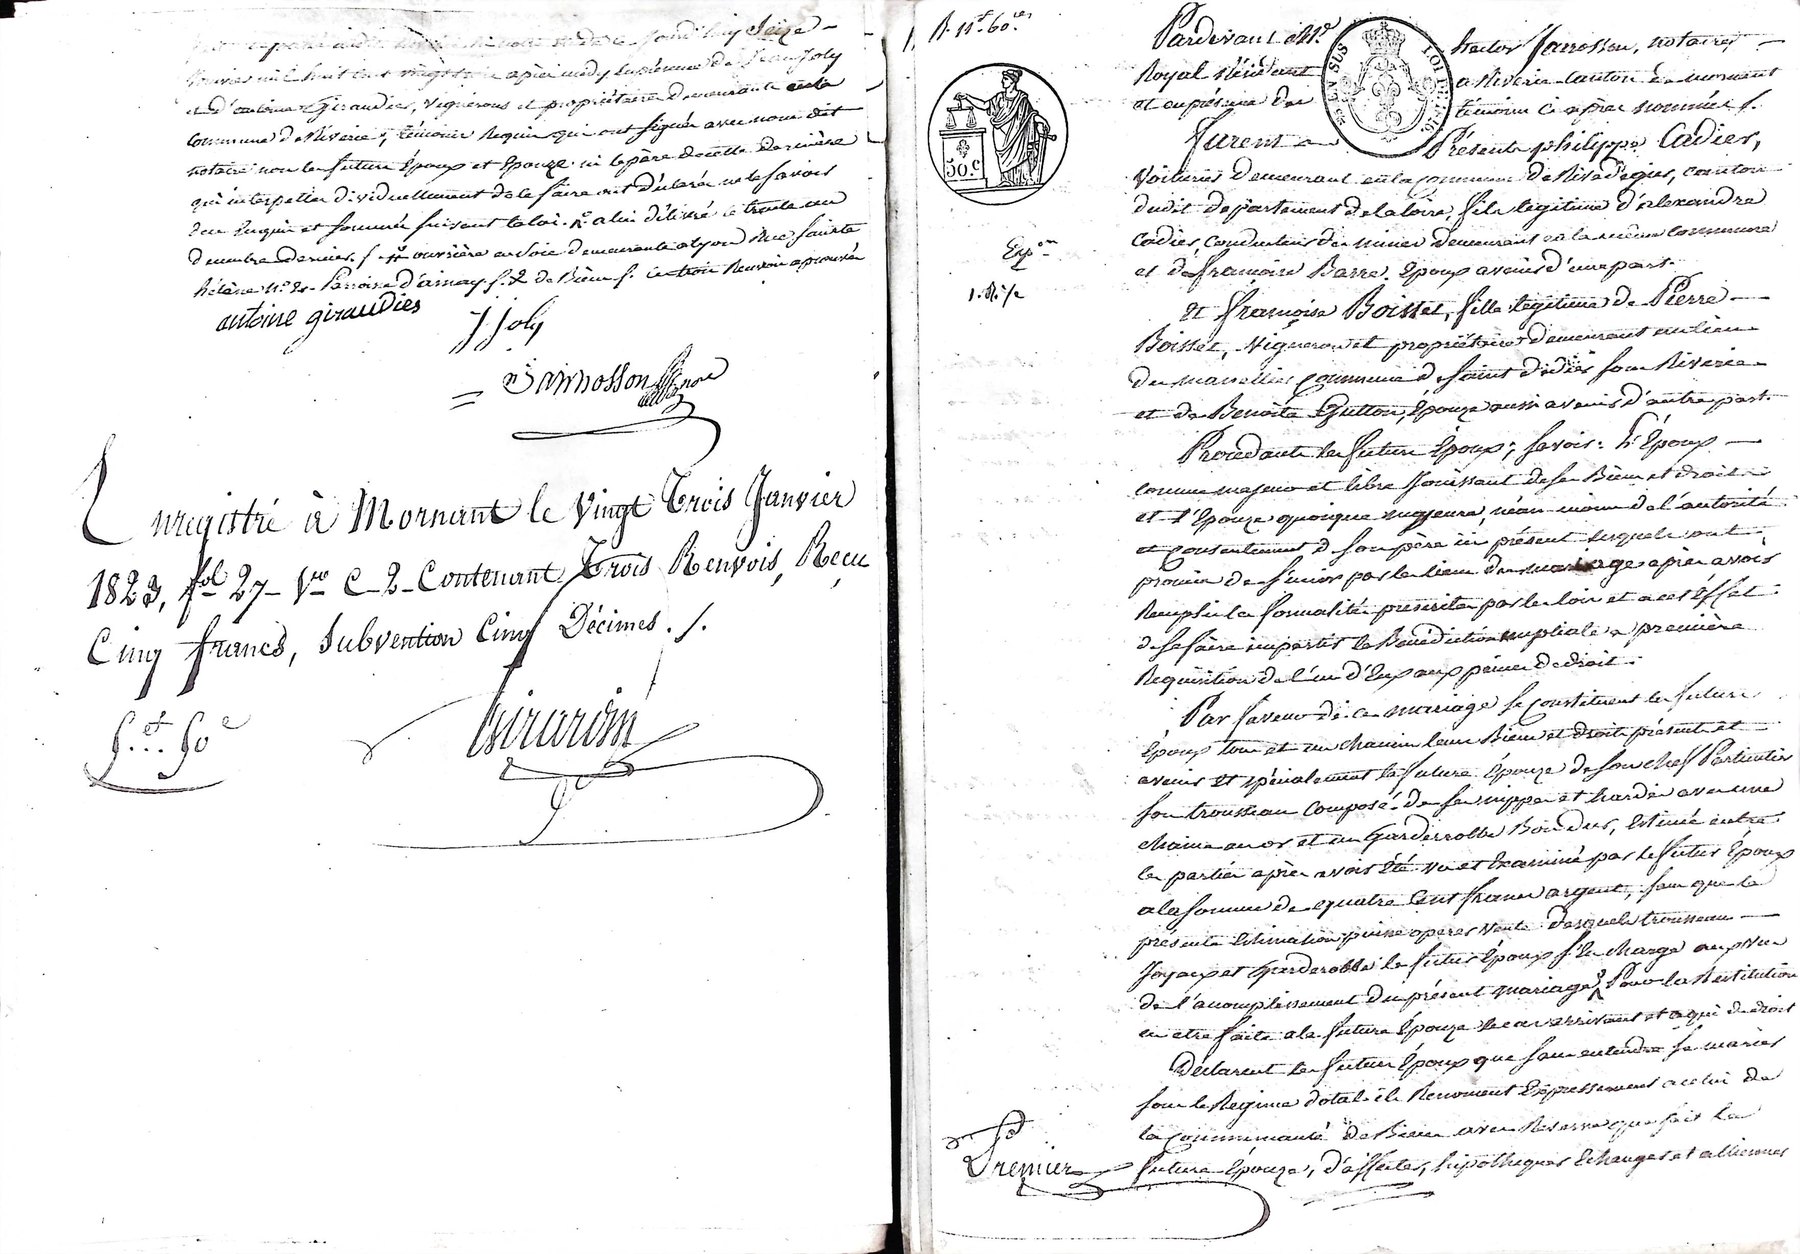 Janvier mil huit cent vingt trois après midy en présence de Jean Joly
et d'antoine Giraudier, vignerons et propriétaires demeurants en la
commune de Riverie, témoins Requis qui ont signés avec nous dit
notaire non les futurs Epoux et Epouze ni le père de cette dernière
qui interpellés dividuellement de le faire ont déclarés ne le savoir
de ce Enquis et sommés suivant la loi. alin délivré le trente un
décembre dernier. ouvrière en soie demeurante a lyon Rue sainte
hélène n.º Paroisse d'ainay f. & de Biens f. ces trois Renvois approuvés
antoine giraudier
J Joly
Jarrosson
Enregistré à Mornant le vingt Trois Janvier
1823, fol 27 Vo C 2 Contenant Trois Renvois, Reçu
Cinq francs, subvention Cinq Décimes ./.
Girardin
5.ef 50 c
R. 11f 60 ces
50 c
Expon
1. R. /c
Pardevant M.e hector Jarrosson, notaire
Royal Résidant a Riverie canton de mornant
et en présence des témoins ci après nommés f.
furent Présents philippe Cadier,
Voiturier demeurant en la commune de Rive de gier, canton
dudit département de la loire, fils légitime d'alexandre
Cadier, conducteur de mines demeurant en la même commune
et de françoise Barre. Epoux avenir d'une part.
Et françoise Boisset, fille légitime de Pierre
Boisset, vigneron et propriétaire demeurant au lieu
du marsellier commune de saint didier sous Riverie
et de Benoite Gutton, Epouze aussi avenir d'autre part.
Procédants les futurs Epoux; savoir: l'Epoux
comme majeur et libre Jouissant de ses Biens et droits
et l'Epouze quoique majeure, néan moins de l'autorité
et consentement de son père ici présent lesquels ont
promis de s'unir par les liens du mariage après avoir
Rempli les formalités prescrites par les lois et a cet Effet
de se faire impartir la Bénédiction nuptiale a première
Réquisition de l'un d'Eux aux peines de droit.
Par faveur de ce mariage se Constituent les futurs
Epoux tous et un chacun leurs Biens et droits présents et
avenir Et spécialement la future Epouze de son chef Particulier
son trousseau composé de ses nippes et hardes avec une
chaine en or et un Garderobbe Bois dur, Estimés entre
les parties après avoir Eté vu et Examiné par le futur Epoux
a la somme de quatre Cent francs argent, sans que la
présente Estimation puisse opérer vente desquels trousseau
Joyaux et Garderobbe le futur Epoux s'En charge au vu
de l'accomplissement du présent mariage Pour la Restitution
en etre faite a la future Epouze le cas arrivant et a qui de droit
Déclarent les futurs Epoux que sans entendre se marier
sous le Régime dotal ils Renoncent Expressement a celui de
la Communauté de Biens avec Réserve que fait la
future Epouze, d'affecter, hipothéquer Echanger et alliener
Premier